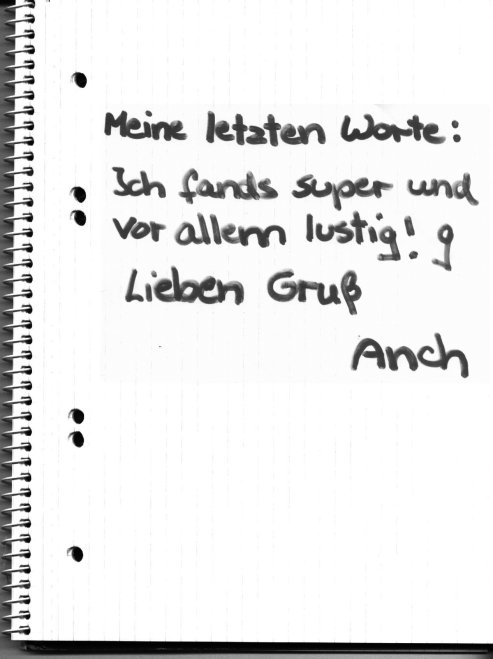 Meine letzten Worte:
Ich fands super und
vor allem lustig! g
Lieben Gruß
Anch